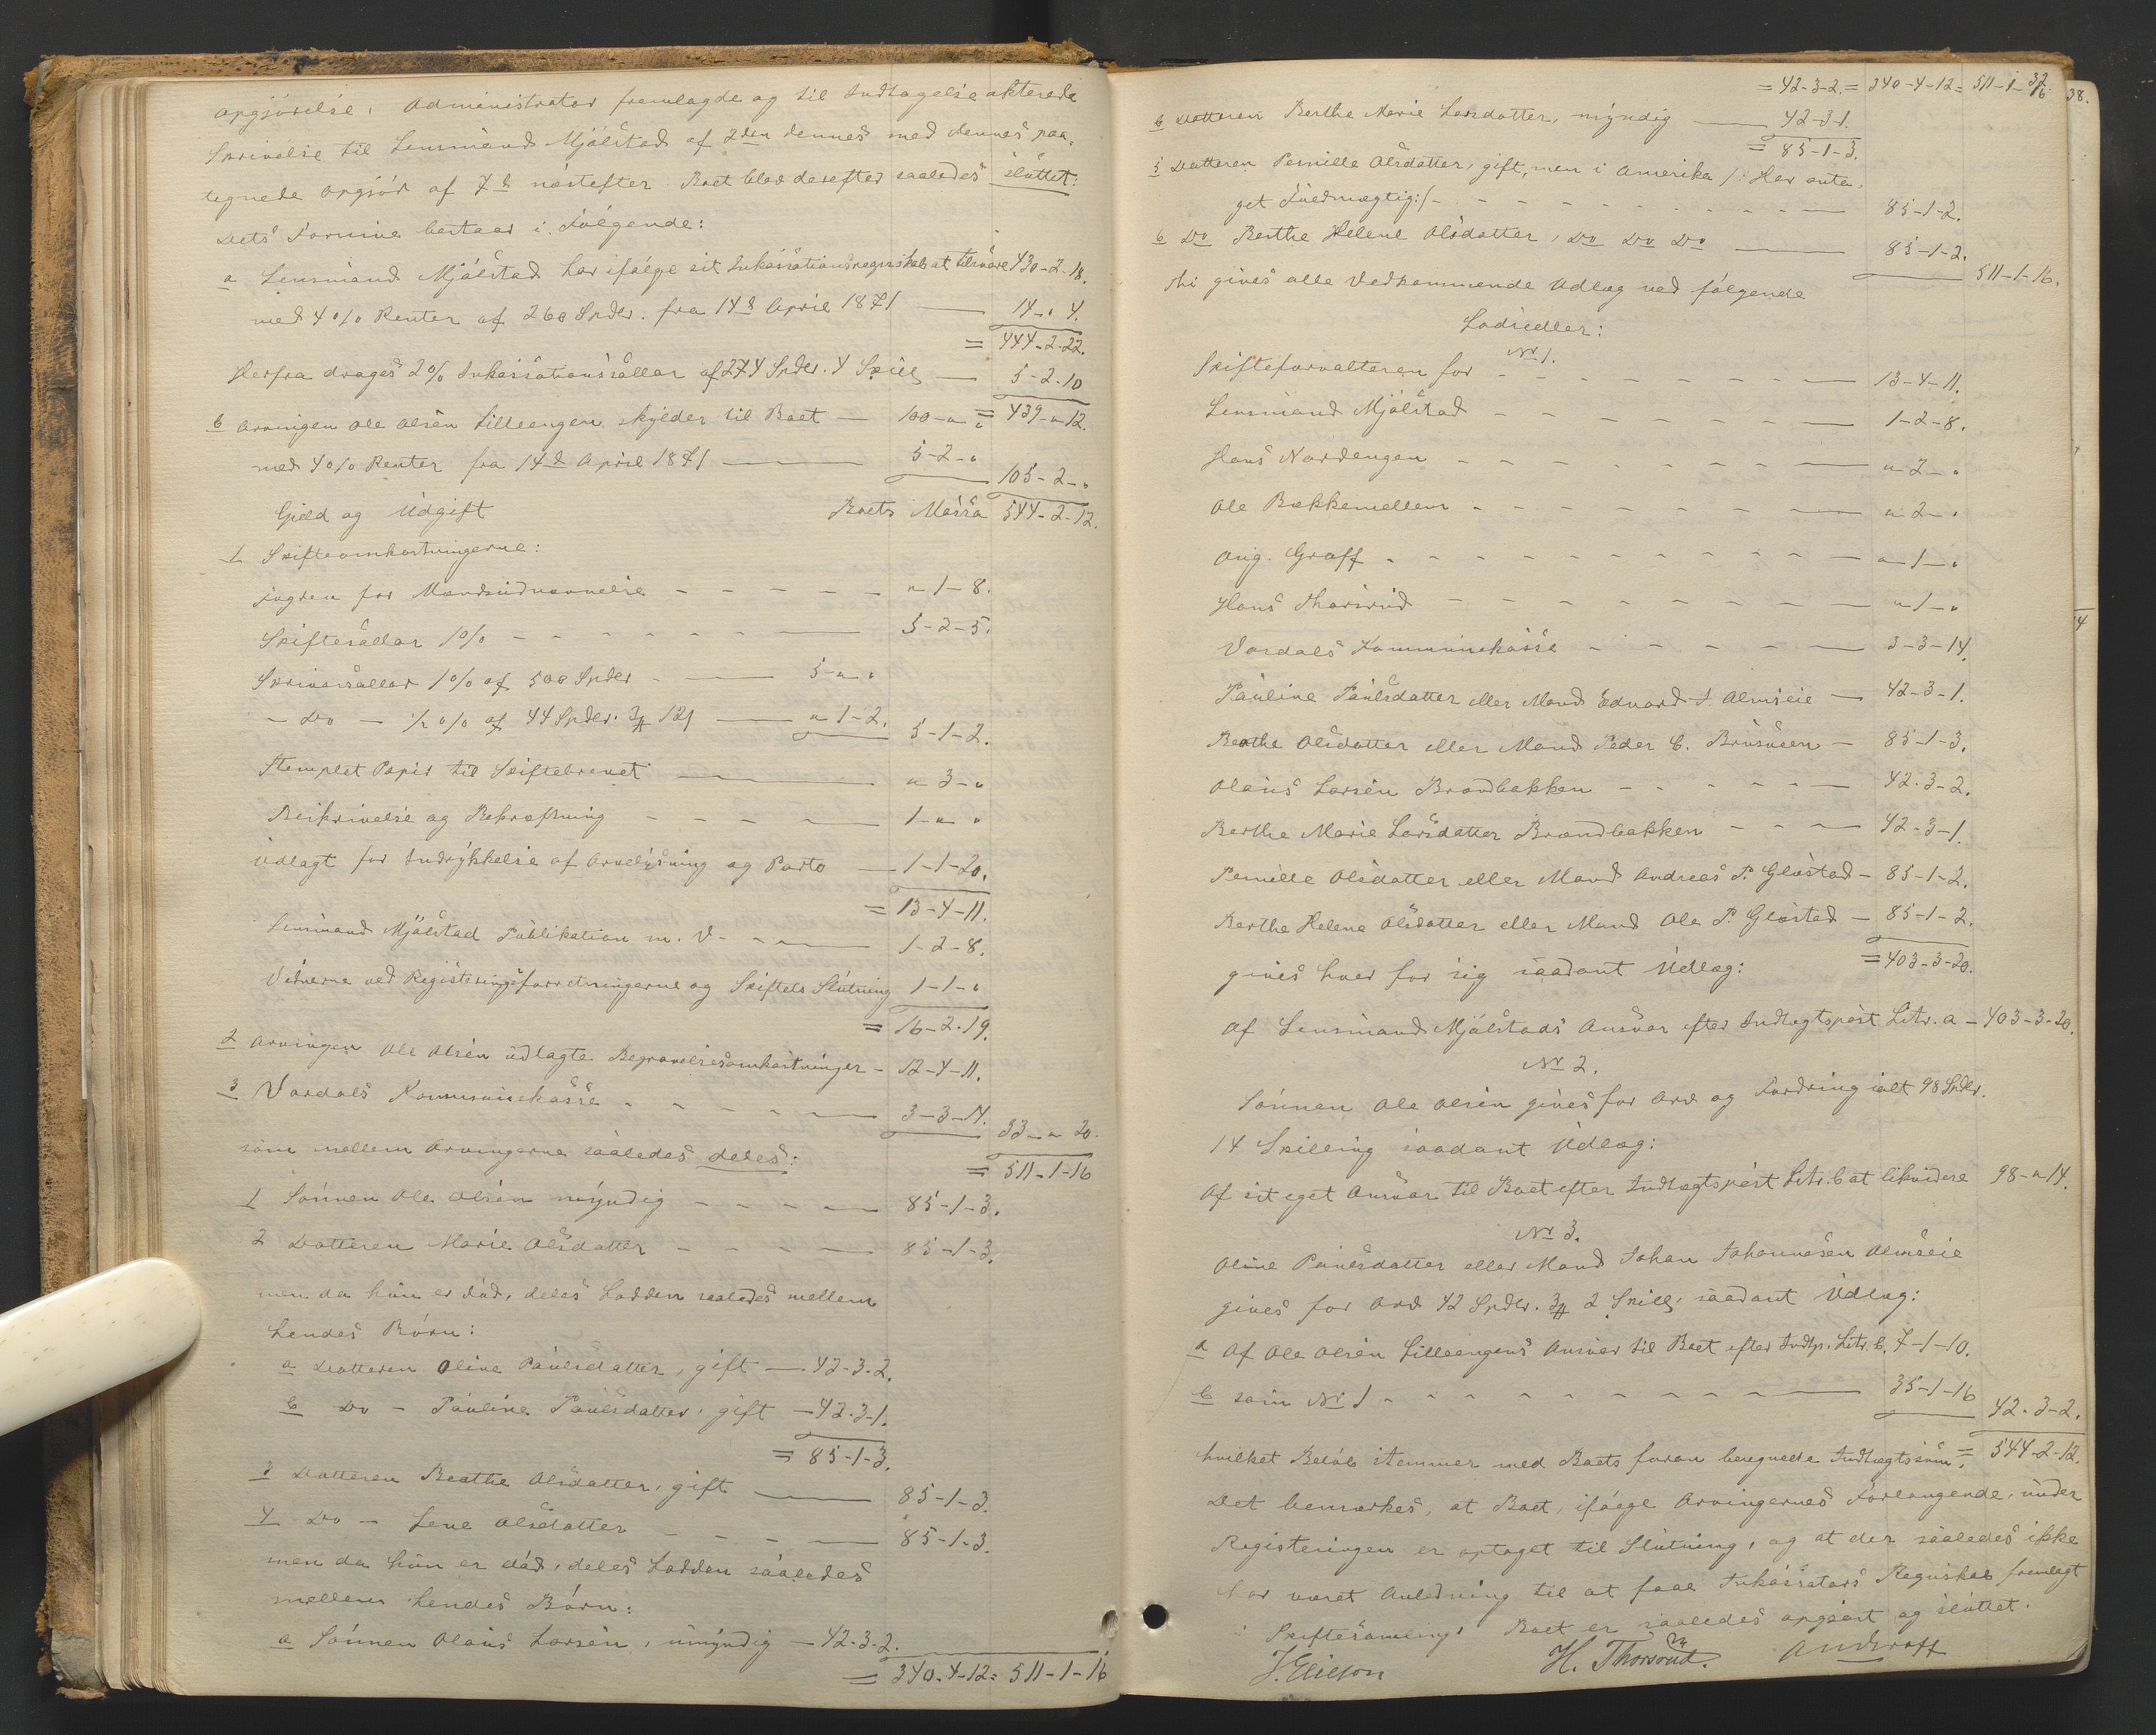 opgjörelse. Administrator fremlagde og til Indtagelse akterede
Skrivelse til Lensmand Mjölstad af 2den dennes med dennes paa-
tegnede Opgjör af 7de næstefter. Boet blev derefter saaledes sluttet:
Dets Formue bestaar i Fölgende:
a Lensmand Mjölstad har ifölge sit Inkassationsregnskab at tilsvare 430-2-18.
med 4% Renter af 260 Spdlr. fra 14de April 1871 — 14-"-4.
= 444-2-22.
Herfra drages 2% Inkassationssallær af 274 Spdlr. 4 Skill — 5-2-10
b Arvingen Ole Olsen Lilleengen skylder til Boet — 100-"-" = 439-"-12.
med 4% Renter fra 14de April 1871 — 5-2-"
105-2-"
Gjeld og Udgift Boets Massa 544-2-12.
1 Skifteomkostningerne:
Fogden for Mændsudnævnelse - - - - "-1-8.
Skiftesallær 1% - - - - 5-2-5.
Skriversallær 1% af 500 Spdlr - — 5-"-"
- Do - ½% af 44 Spdlr. 2# 12ß — "-1-2. 5-1-2.
Stemplet Papir til Skiftebrevet — "-3-"
Beskrivelse og Bekræftning - - - - 1-"-"
Udlagt for Indrykkelse af Arvelysning og Porto — 1-1-20.
= 13-4-11.
Lensmand Mjölstad Publikation m. V. - - — 1-2-8.
Vidnerne ved Registeringsforretningerne og Skiftets Slutning 1-1-"
= 16-2-19.
2 Arvingen Ole Olsen udlagte Begravelsesomkostninger - 12-4-11.
3 Vardals Kommunekasse - - - - — 3-3-14.
33-"-20.
som mellem Arvingerne saaledes deles: = 511-1-16
1 Sönnen Ole Olsen myndig - - - - 85-1-3.
2 Datteren Marie Olsdatter - - - - 85-1-3.
men da hun er död, deles Lodden saaledes mellem
hendes Börn:
a Datteren Oline Paulsdatter, gift — 42-3-2.
b Do - Pauline Paulsdatter, gift — 42-3-1.
= 85-1-3.
3 Datteren Beathe Olsdatter, gift — 85-1-3.
4 Do - Lene Olsdatter - - - — 85-1-3.
men da hun er död, deles Lodden saaledes
mellem hendes Börn:
a Sönnen Olaus Larsen, umyndig — 42-3-2.
= 340-4-12 = 511-1-16
38.
= 42-3-2. = 340-4-12 = 511-1-16
b Datteren Berthe Marie Larsdatter, myndig — 42-3-1.
= 85-1-3.
5 Datteren Pernille Olsdatter, gift, men i Amerika /: Har anta-
get Fuldmægtig:/ - - - - - - 85-1-2.
6 Do Berthe Helene Olsdatter, Do Do Do — 85-1-2.
511-1-16.
Thi gives alle Vedkommende Udlæg ved fölgende
Lodsedler:
No 1.
Skifteforvalteren for - - - - - - 13-4-11.
Lensmand Mjölstad - - - - - - 1-2-8.
Hans Nordengen - - - - - - "-2-"
Ole Bakkemellem - - - - - - "-2-"
Aug. Graff - - - - - - "-1-"
Hans Thorsrud - - - - - - "-1-"
Vardals Kommunekasse - - - - - 3-3-14.
Pauline Paulsdatter eller Mand Edvard J. Almseie — 42-3-1.
Beathe Olsdatter eller Mand Peder C. Brusveen — 85-1-3.
Olaus Larsen Brandbakken - - - - - 42-3-2.
Berthe Marie Larsdatter Brandbakken - - - 42-3-1.
Pernille Olsdatter eller Mand Andreas P. Gløstad - 85-1-2.
Berthe Helene Olsdatter eller Mand Ole P. Gløstad — 85-1-2.
gives hver for sig saadant Udlæg: = 403-3-20.
Af Lensmand Mjölstads Ansvar efter Indtægtspost Litr. a — 403-3-20.
No 2.
Sönnen Ole Olsen gives for Arv og Fordring ialt 98 Spdlr.
14 Skilling saadant Udlæg:
Af sit eget Ansvar til Boet efter Indtægtspost Litr. b at likvidere 98-"-14.
No 3.
Oline Paulsdatter eller Mand Johan Johannesen Almseie
gives for Arv 42 Spdlr. 3# 2 Skill, saadant Udlæg:
a Af Ole Olsen Lilleengens Ansvar til Boet efter Indtp. Litr. b. 7-1-10.
b som No 1 - - - - - - 35-1-16
42-3-2.
hvilket Belöb stemmer med Boets foran beregnede Indtægtssum. = 544-2-12.
Det bemærkes, at Boet, ifölge Arvingernes Forlangende, under
Registeringen er optaget til Slutning, og at der saaledes ikke
har været Anledning til at faae Inkassators Regnskab fremlagt
i Skiftesamling. Boet er saaledes opgjort og sluttet.
J. Ellefson H. Thorsrud. AugGraff